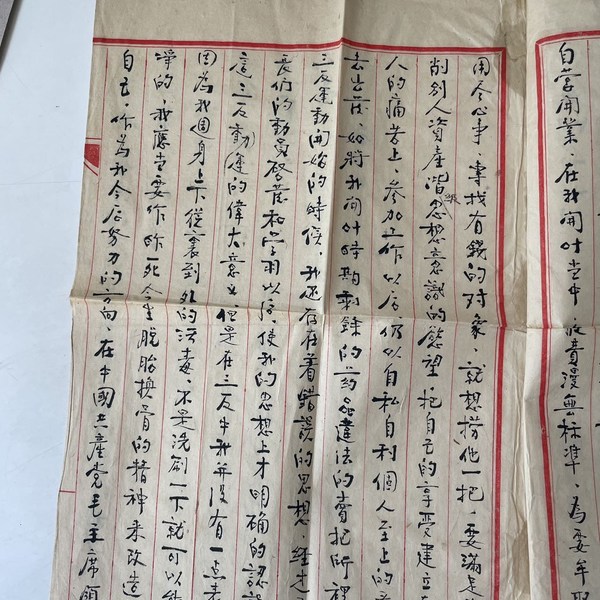 自营開業、在我開业当中收費漫無标準、為要牟取
用尽心事、專找有錢的对象、就想捞他一把、要滿足
剝削人資產階级思想意識的慾望把自己的享受建立在
人的痛苦上、参加工作以后仍以自私自利個人至上的
去出發、如將我開业時期剩餘的药品違法的賣
三反運動開始的時候、我还存在着錯誤的思想、經
長們的動員啟發和学習以后使我的思想上才明確的認識
這三反運動的偉大意义但是在三反中我并没有一点表
因為我週身上下從裏到外的污毒、不是洗刷一下就可以
净的、我應当要作昨死今生脫胎換骨的精神来改造
自己、作為我今后努力的方向、在中國共產党毛主席領